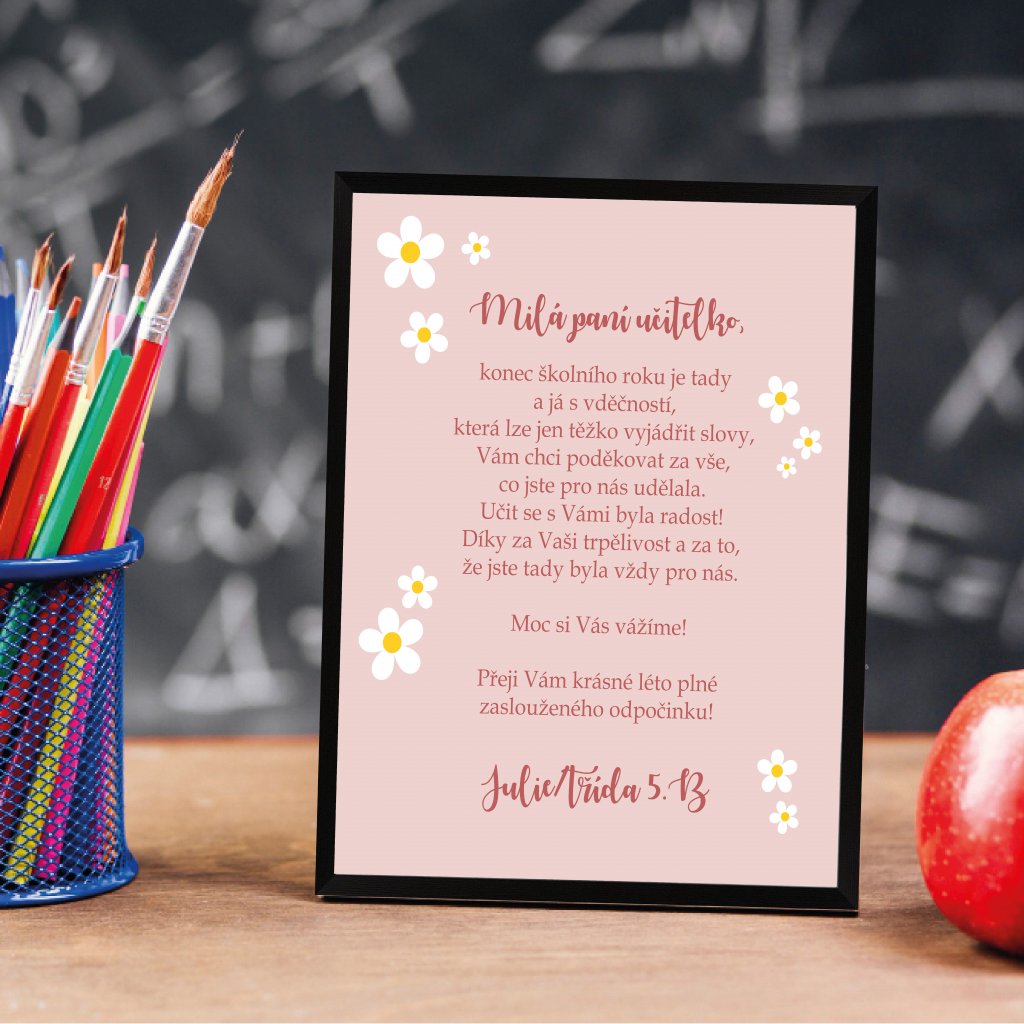 Milá paní učitelko,
konec školního roku je tady
a já s vděčností,
která lze jen těžko vyjádřit slovy,
Vám chci poděkovat za vše,
co jste pro nás udělala.
Učit se s Vámi byla radost!
Díky za Vaši trpělivost a za to,
že jste tady byla vždy pro nás.
Moc si Vás vážíme!
Přeji Vám krásné léto plné
zaslouženého odpočinku!
Julie/třída 5. B
12